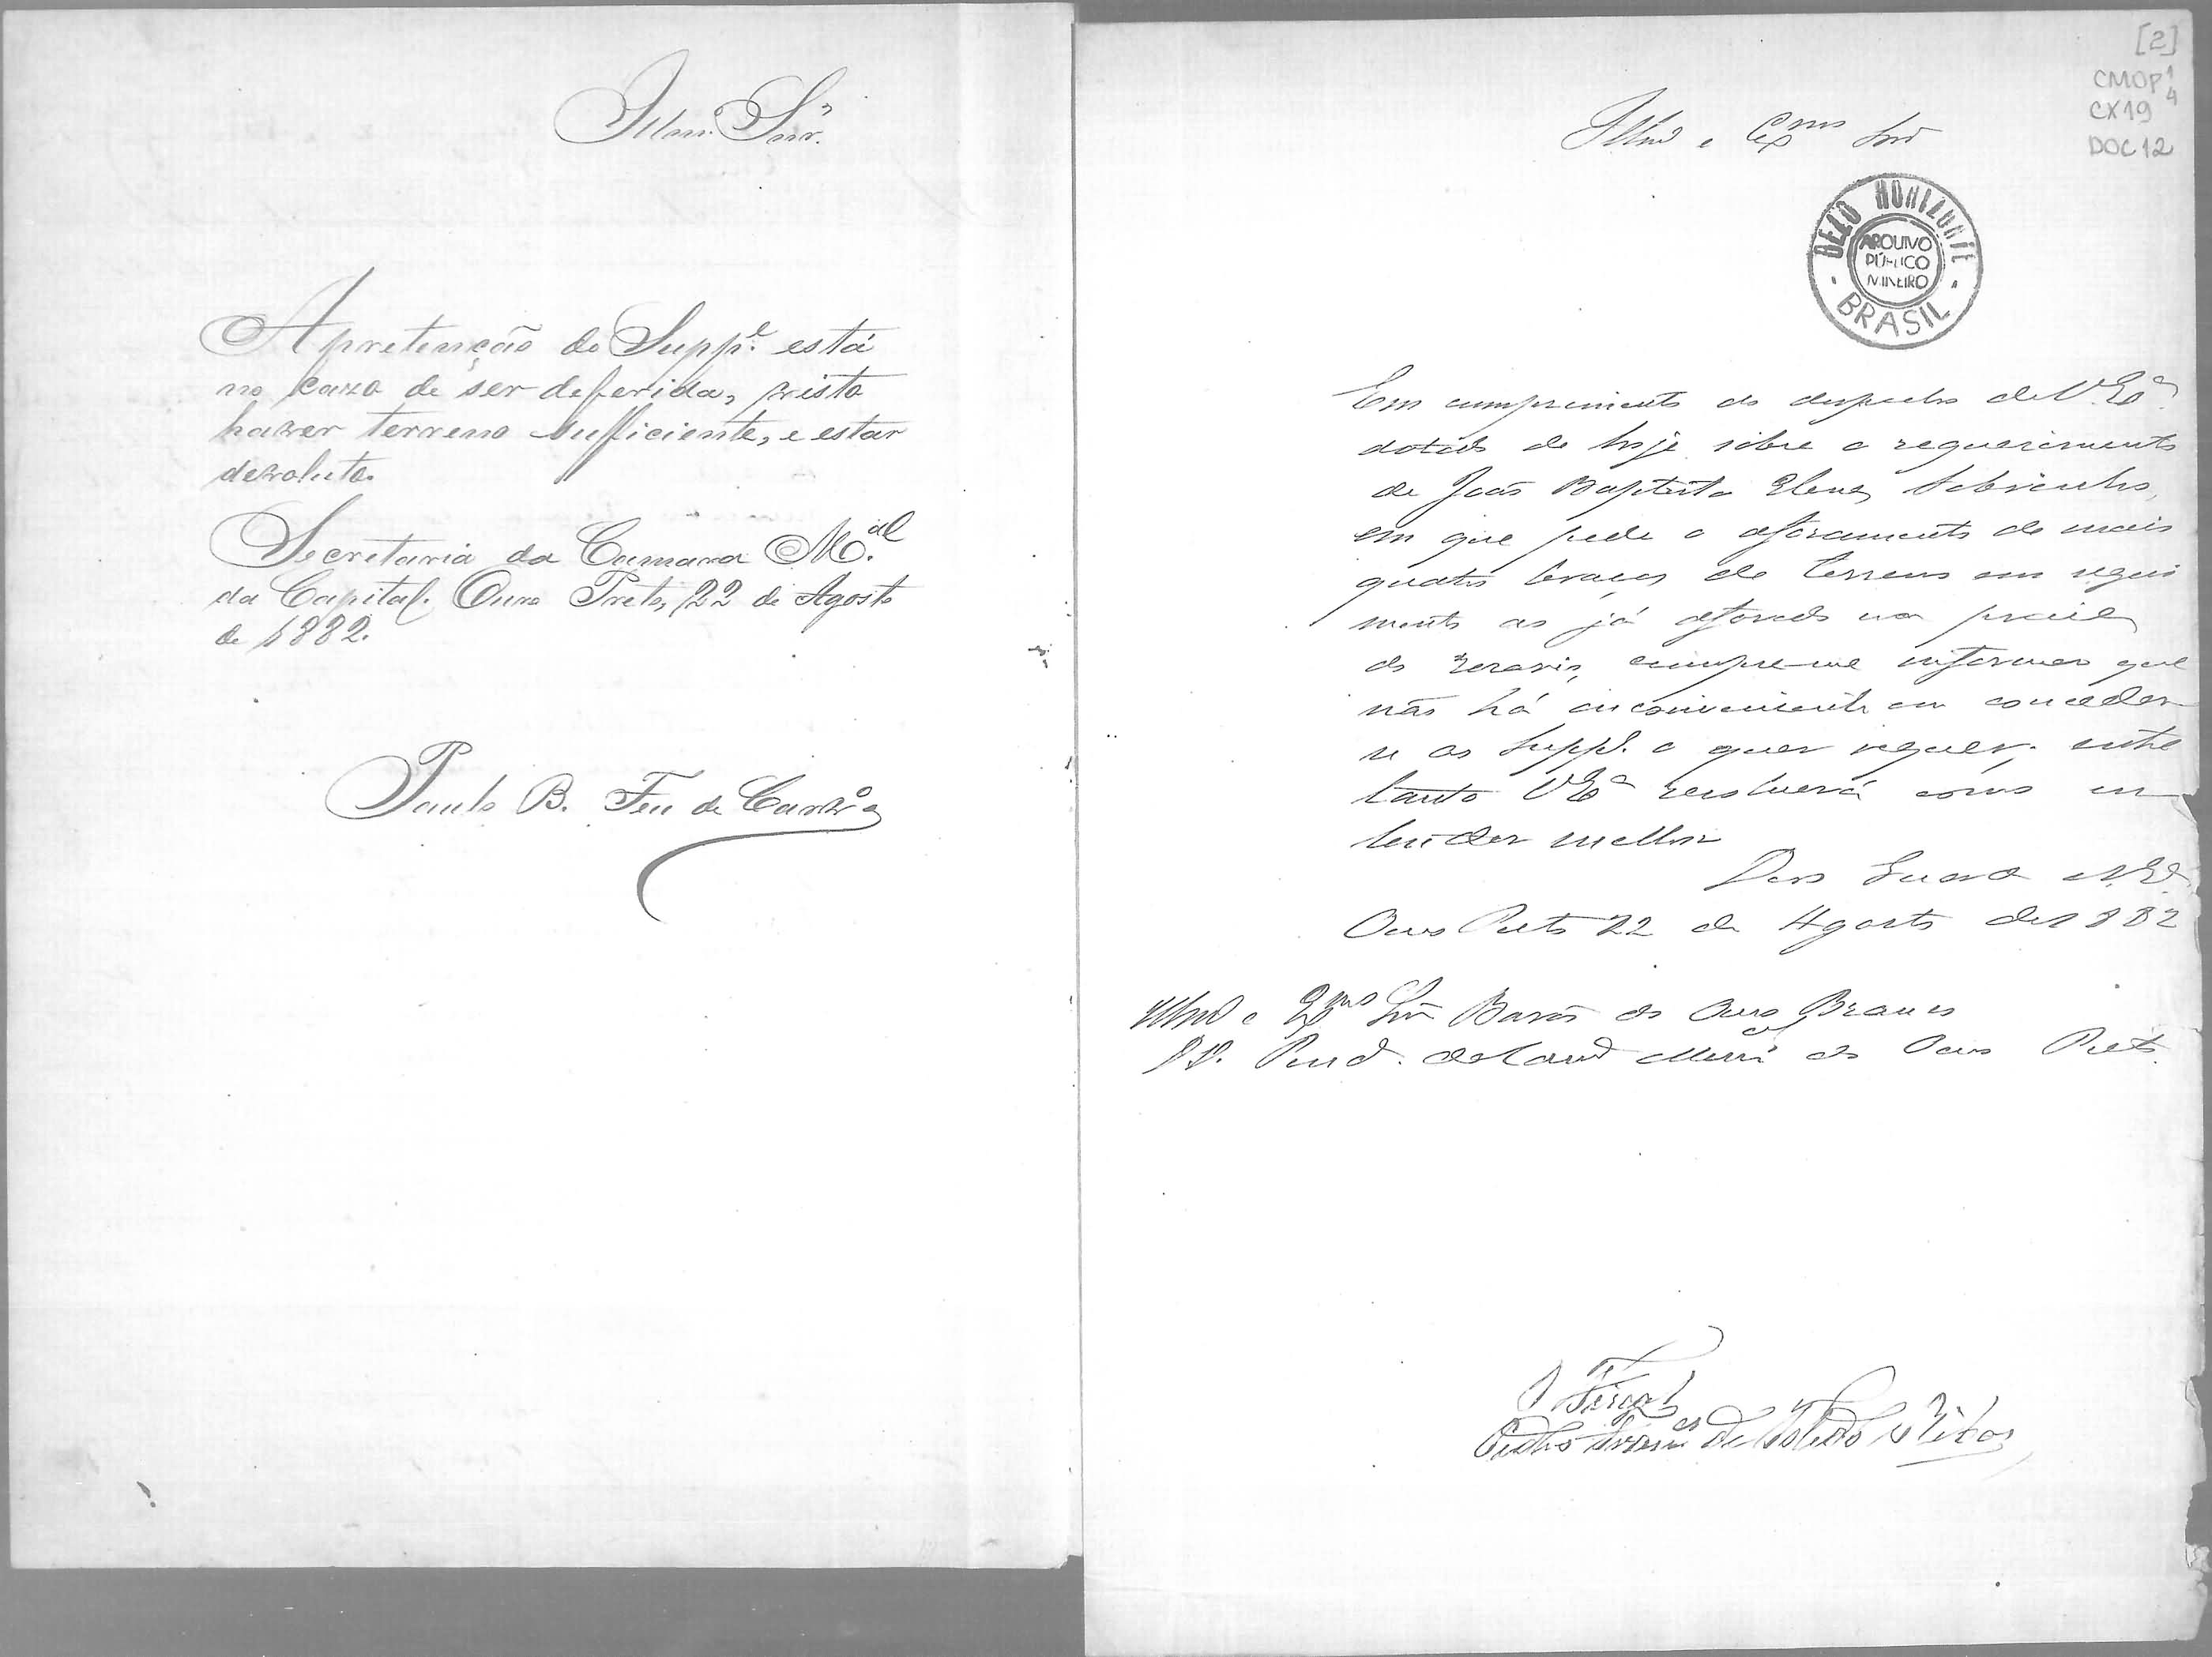 Illmo. Snr.
A pretenção do Suppe. está
no cazo de ser deferida, visto
haver terreno sufficiente, e estar
devoluto.
Secretaria da Camara M.al
da Capital. Ouro Preto, 22 de Agosto
de 1882.
Paulo B. Feu de Carvo
[2]
CMOP 1/4
CX19
DOC 12
Illmo e Exmo Snr
BELO HORIZONTE
ARQUIVO
PÚBLICO
MINEIRO
BRASIL
Em cumprimento do despacho de V. Exa.
datado de hoje sobre o requerimento
de João Baptista Sobrinho,
em que pede o aforamento de mais
quatro braças de terreno em segui
mento as já aforads na
do cumpre-me informar que
não há inconveniente em conceder
se ao Suppl. o quer requer. entre
tanto V Exa resolverá como en
tender melhor
Deos Guarde a V. Exa.
Ouro Preto 22 de Agosto de 1882
Illmo e Exmo Snr Barão de Ouro Branco
Presd. da Camr Munial de Ouro Preto.
O Fiscal
de Toledo